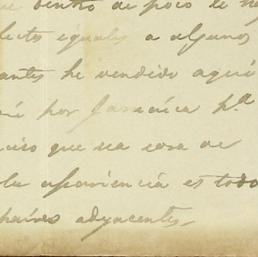 dentro de poco te
iguales a algunos
antes he vendido aquí
por Jamaica p.ª
que sea cosa de
apariencia es todo
adyacentes